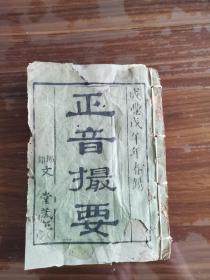 咸豐戊午年春鐫
正音撮要
文堂